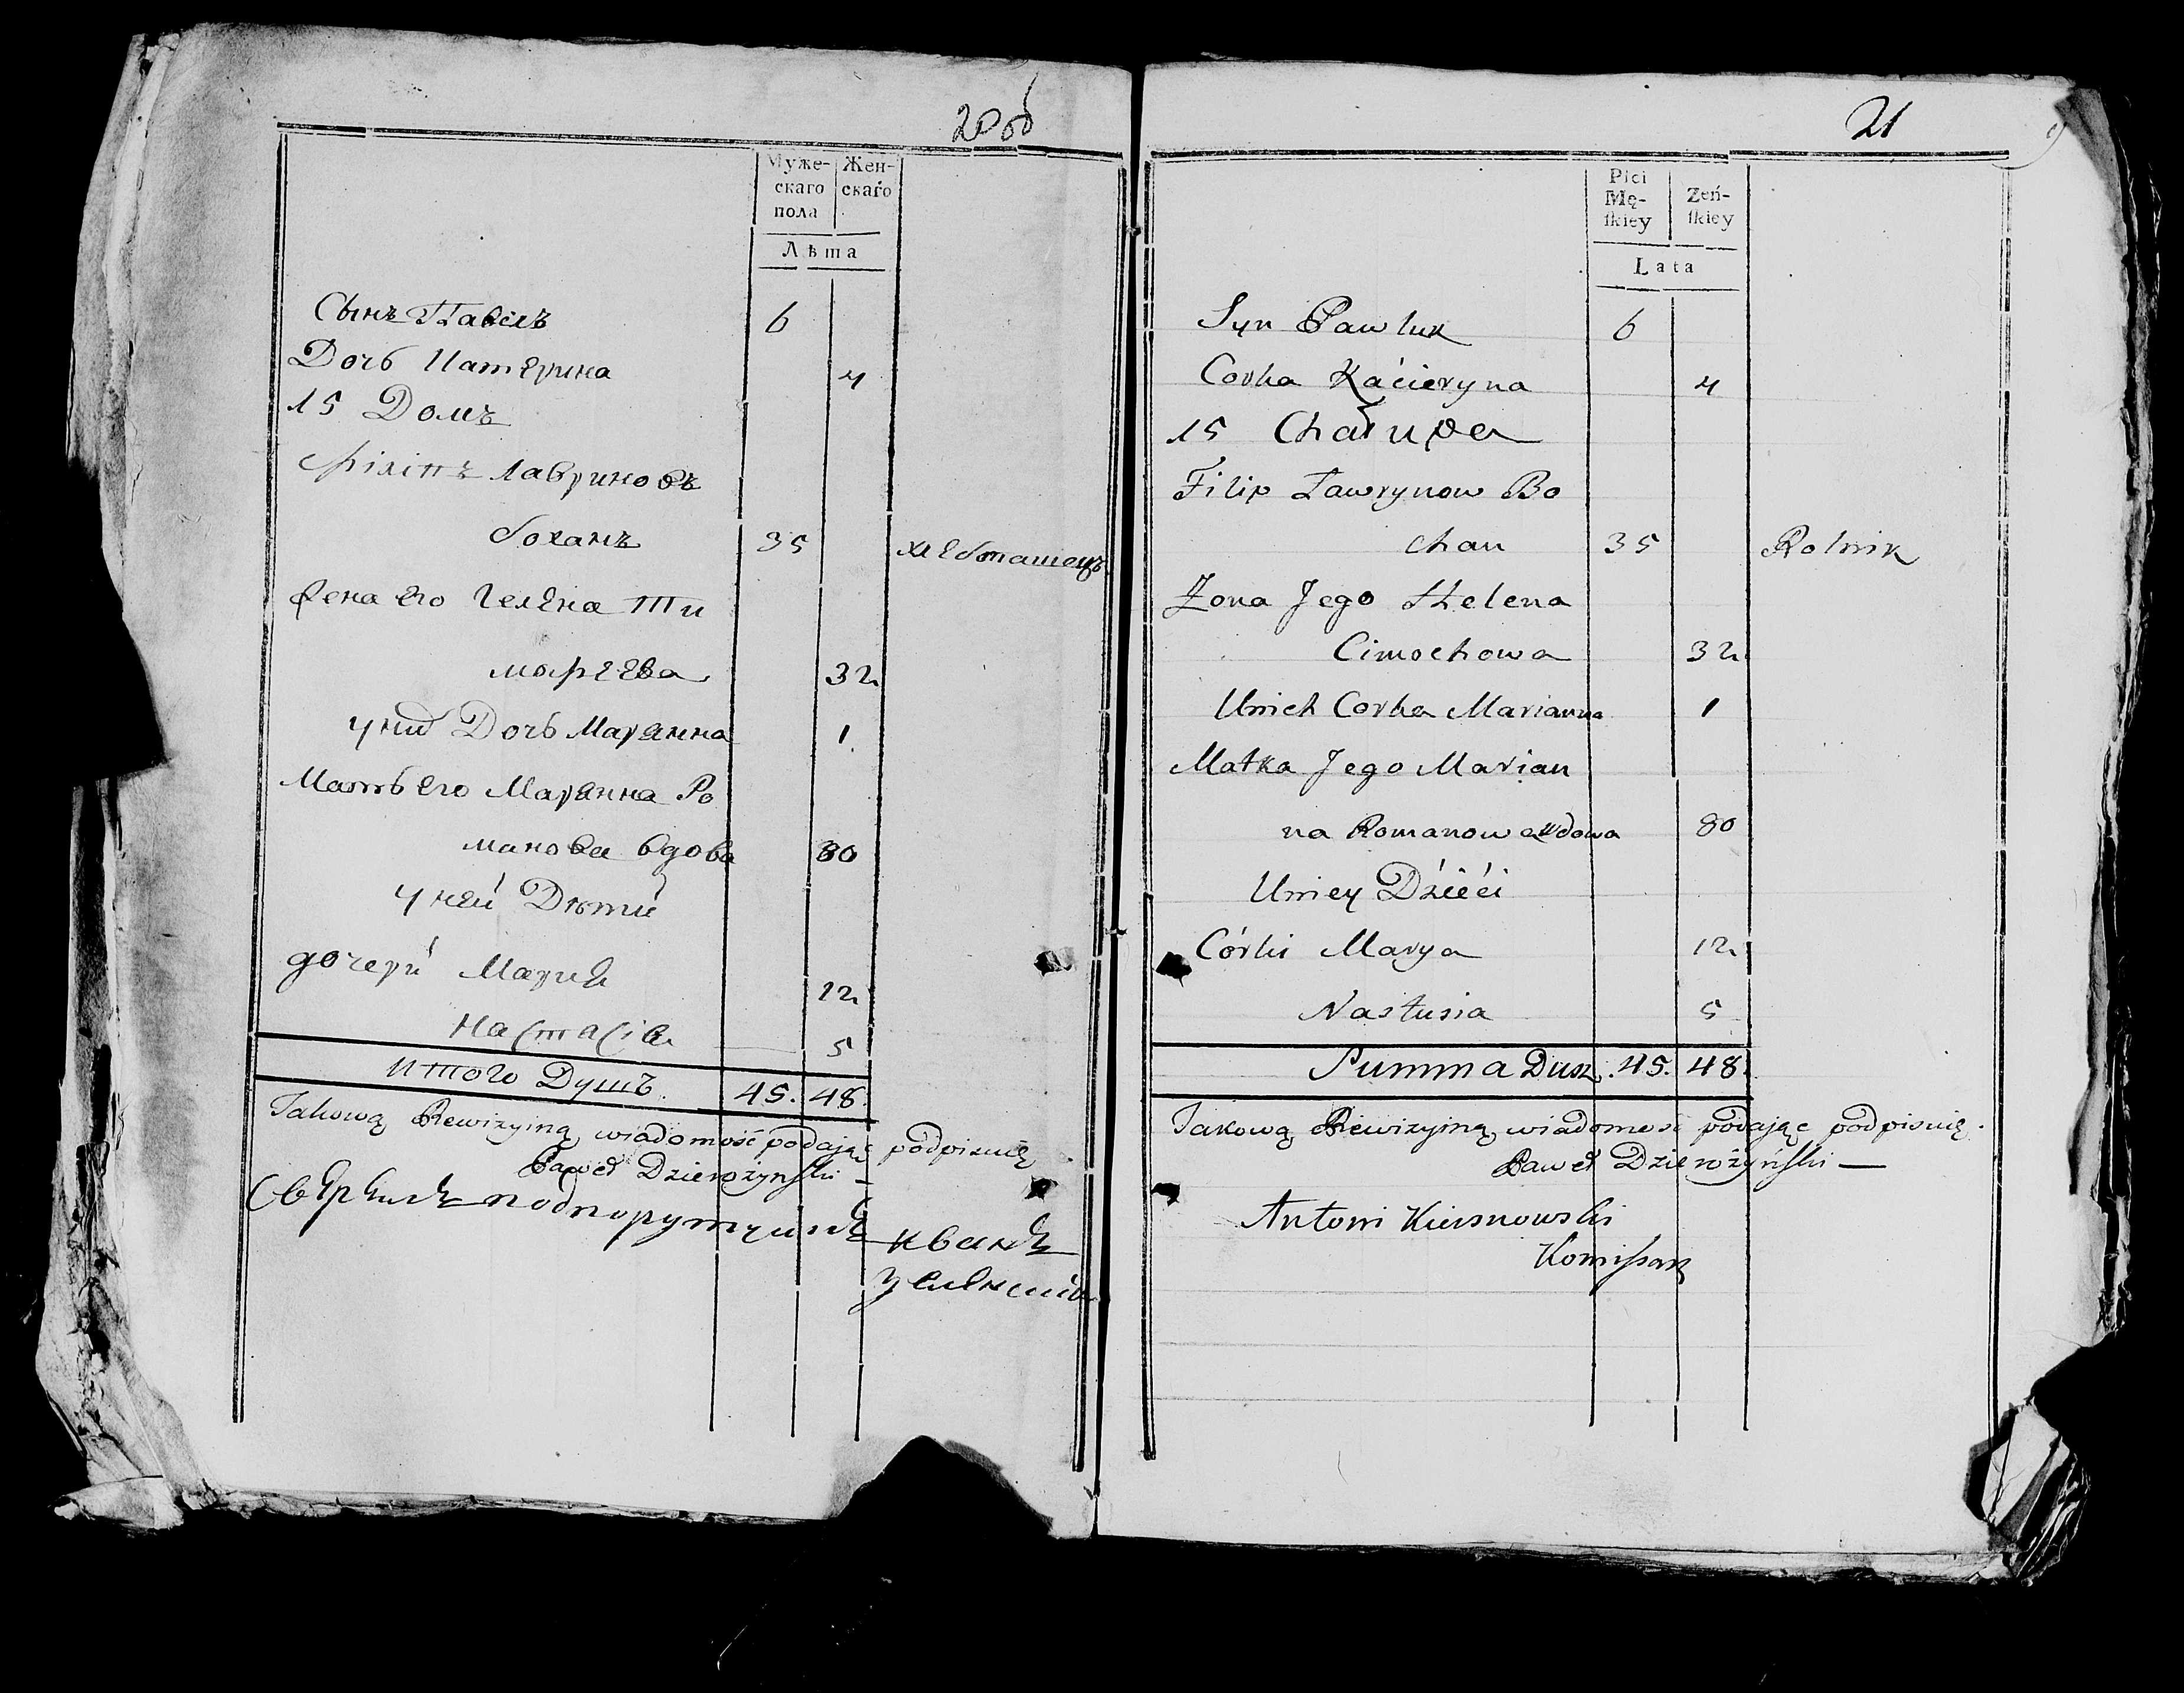 20 об
Муже-
скаго
пола
Жен-
скаго
Лѣта
Сынъ Павелъ 6
Дочь Катерина 4
15 Домъ
Філіпъ Лавриновъ
боханъ 35 хлебопашецъ
Жена его Гелена Ти
мофеева 32
у них Дочь Марянна 1
Мать его Марянна Ро
манова вдова 80
у ней Дѣти
дочери Мария 12
Настасія 5
Итого Душъ 45. 48.
Takową Rewizyiną wiadomość podając podpisuię
Paweł Dzierożyński —
Свѣрилъ подпорутчикъ Иванъ
21
Płci
Mę-
ſkiey
Żeń-
ſkiey
Lata
Syn Pawluk 6
Corka Kaćieryna 4
15 Chałupa
Filip Ławrynow Bo
chan 35 Rolnik
Żona Jego Helena
Cimochowa 32
Unich Corka Marianna 1
Matka Jego Marian
na Romanowa Wdowa 80
Uniey Dźiéći
Córki Marya 12
Nastusia 5
Summa Dusz. 45. 48.
Takową Rewizyiną wiadomość podając podpisuię.
Paweł Dzierożyński —
Antoni Kiersnowski
Komiſsarz